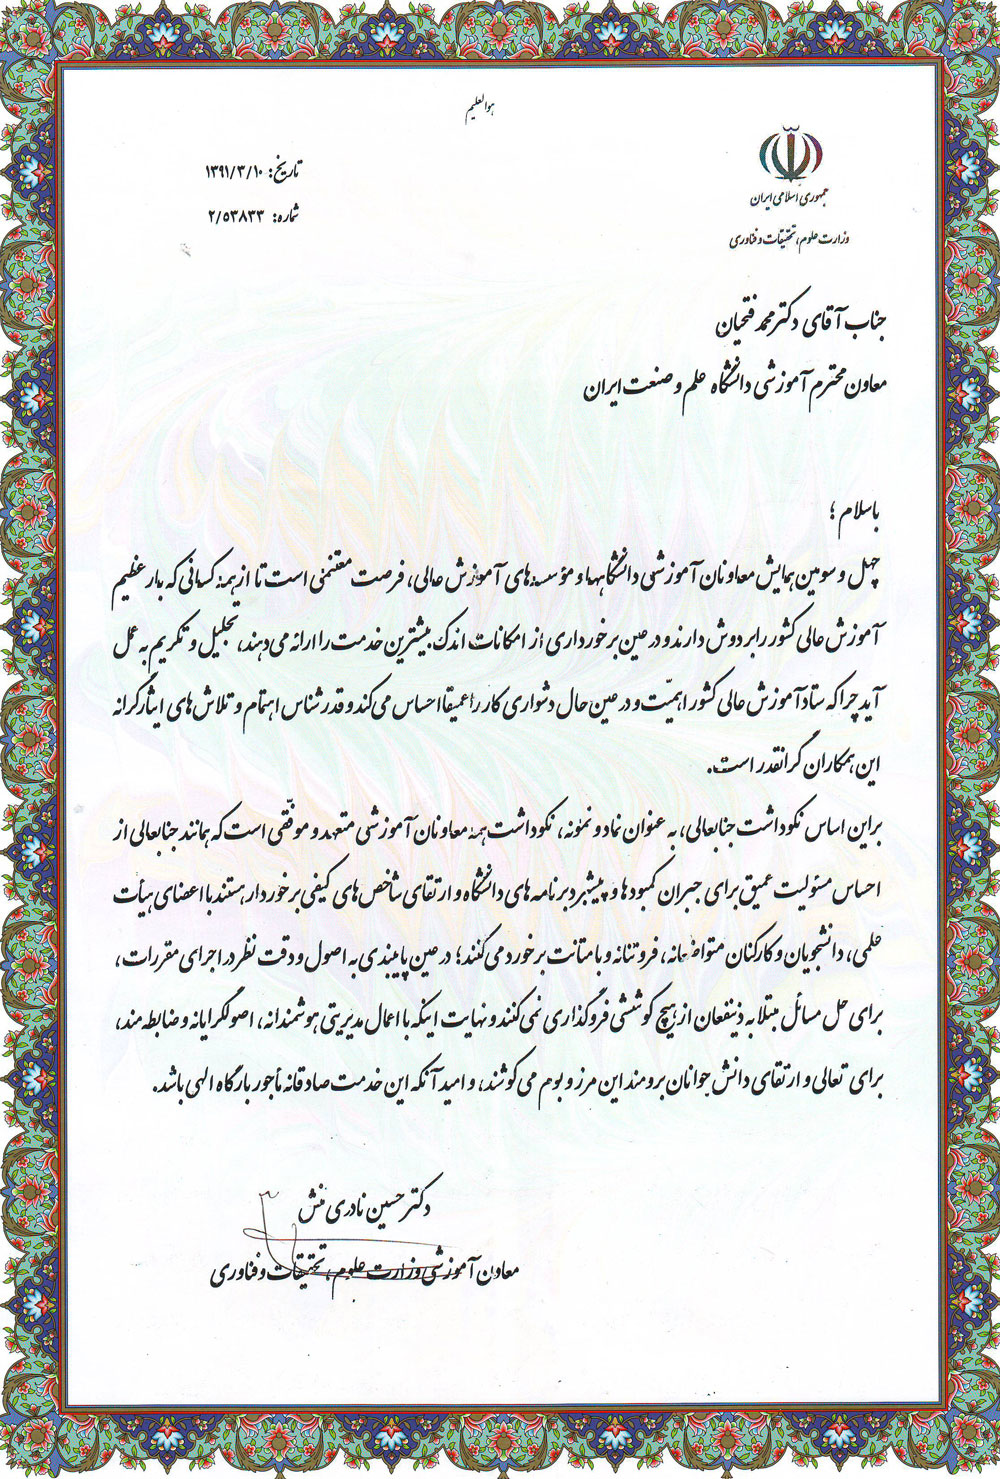 هوالعلیم
جمهوری اسلامی ایران
وزارت علوم، تحقیقات و فناوری
تاریخ: ۱۳۹۱/۳/۱۰
شماره: ۲/۵۳۸۳۳
جناب آقای دکتر محمد فتحیان
معاون محترم آموزشی دانشگاه علم و صنعت ایران
باسلام ؛
چهل و سومین همایش معاونان آموزشی دانشگاهها و مؤسسه های آموزش عالی، فرصت مغتنمی است تا از همه کسانی که بار عظیم
آموزش عالی کشور را بر دوش دارند و در عین برخورداری از امکانات اندک بیشترین خدمت را ارائه می دهند، تجلیل و تکریم به عمل
آید چرا که ستاد آموزش عالی کشور اهمیّت و در عین حال دشواری کار را عمیقا احساس می کند و قدر شناس اهتمام و تلاش های ایثارگرانه
این همکاران گرانقدر است.
براین اساس نکوداشت جنابعالی، به عنوان نماد و نمونه، نکوداشت همه معاونان آموزشی متعهد و موفّقی است که همانند جنابعالی از
احساس مسئولیت عمیق برای جبران کمبودها و پیشبرد برنامه های دانشگاه و ارتقای شاخص های کیفی برخوردار هستند با اعضای هیأت
علمی، دانشجویان و کارکنان متواضعانه، فروتنانه و با متانت برخورد می کنند؛ در عین پایبندی به اصول و دقت نظر در اجرای مقررات،
برای حل مسائل مبتلا به ذینفعان از هیچ کوششی فروگذاری نمی کنند و نهایت اینکه با اعمال مدیریتی هوشمندانه، اصولگرایانه و ضابطه مند،
برای تعالی و ارتقای دانش جوانان برومند این مرز و بوم می کوشند، و امید آنکه این خدمت صادقانه مأجور بارگاه الهی باشد.
دکتر حسین نادری منش
معاون آموزشی وزارت علوم، تحقیقات و فناوری